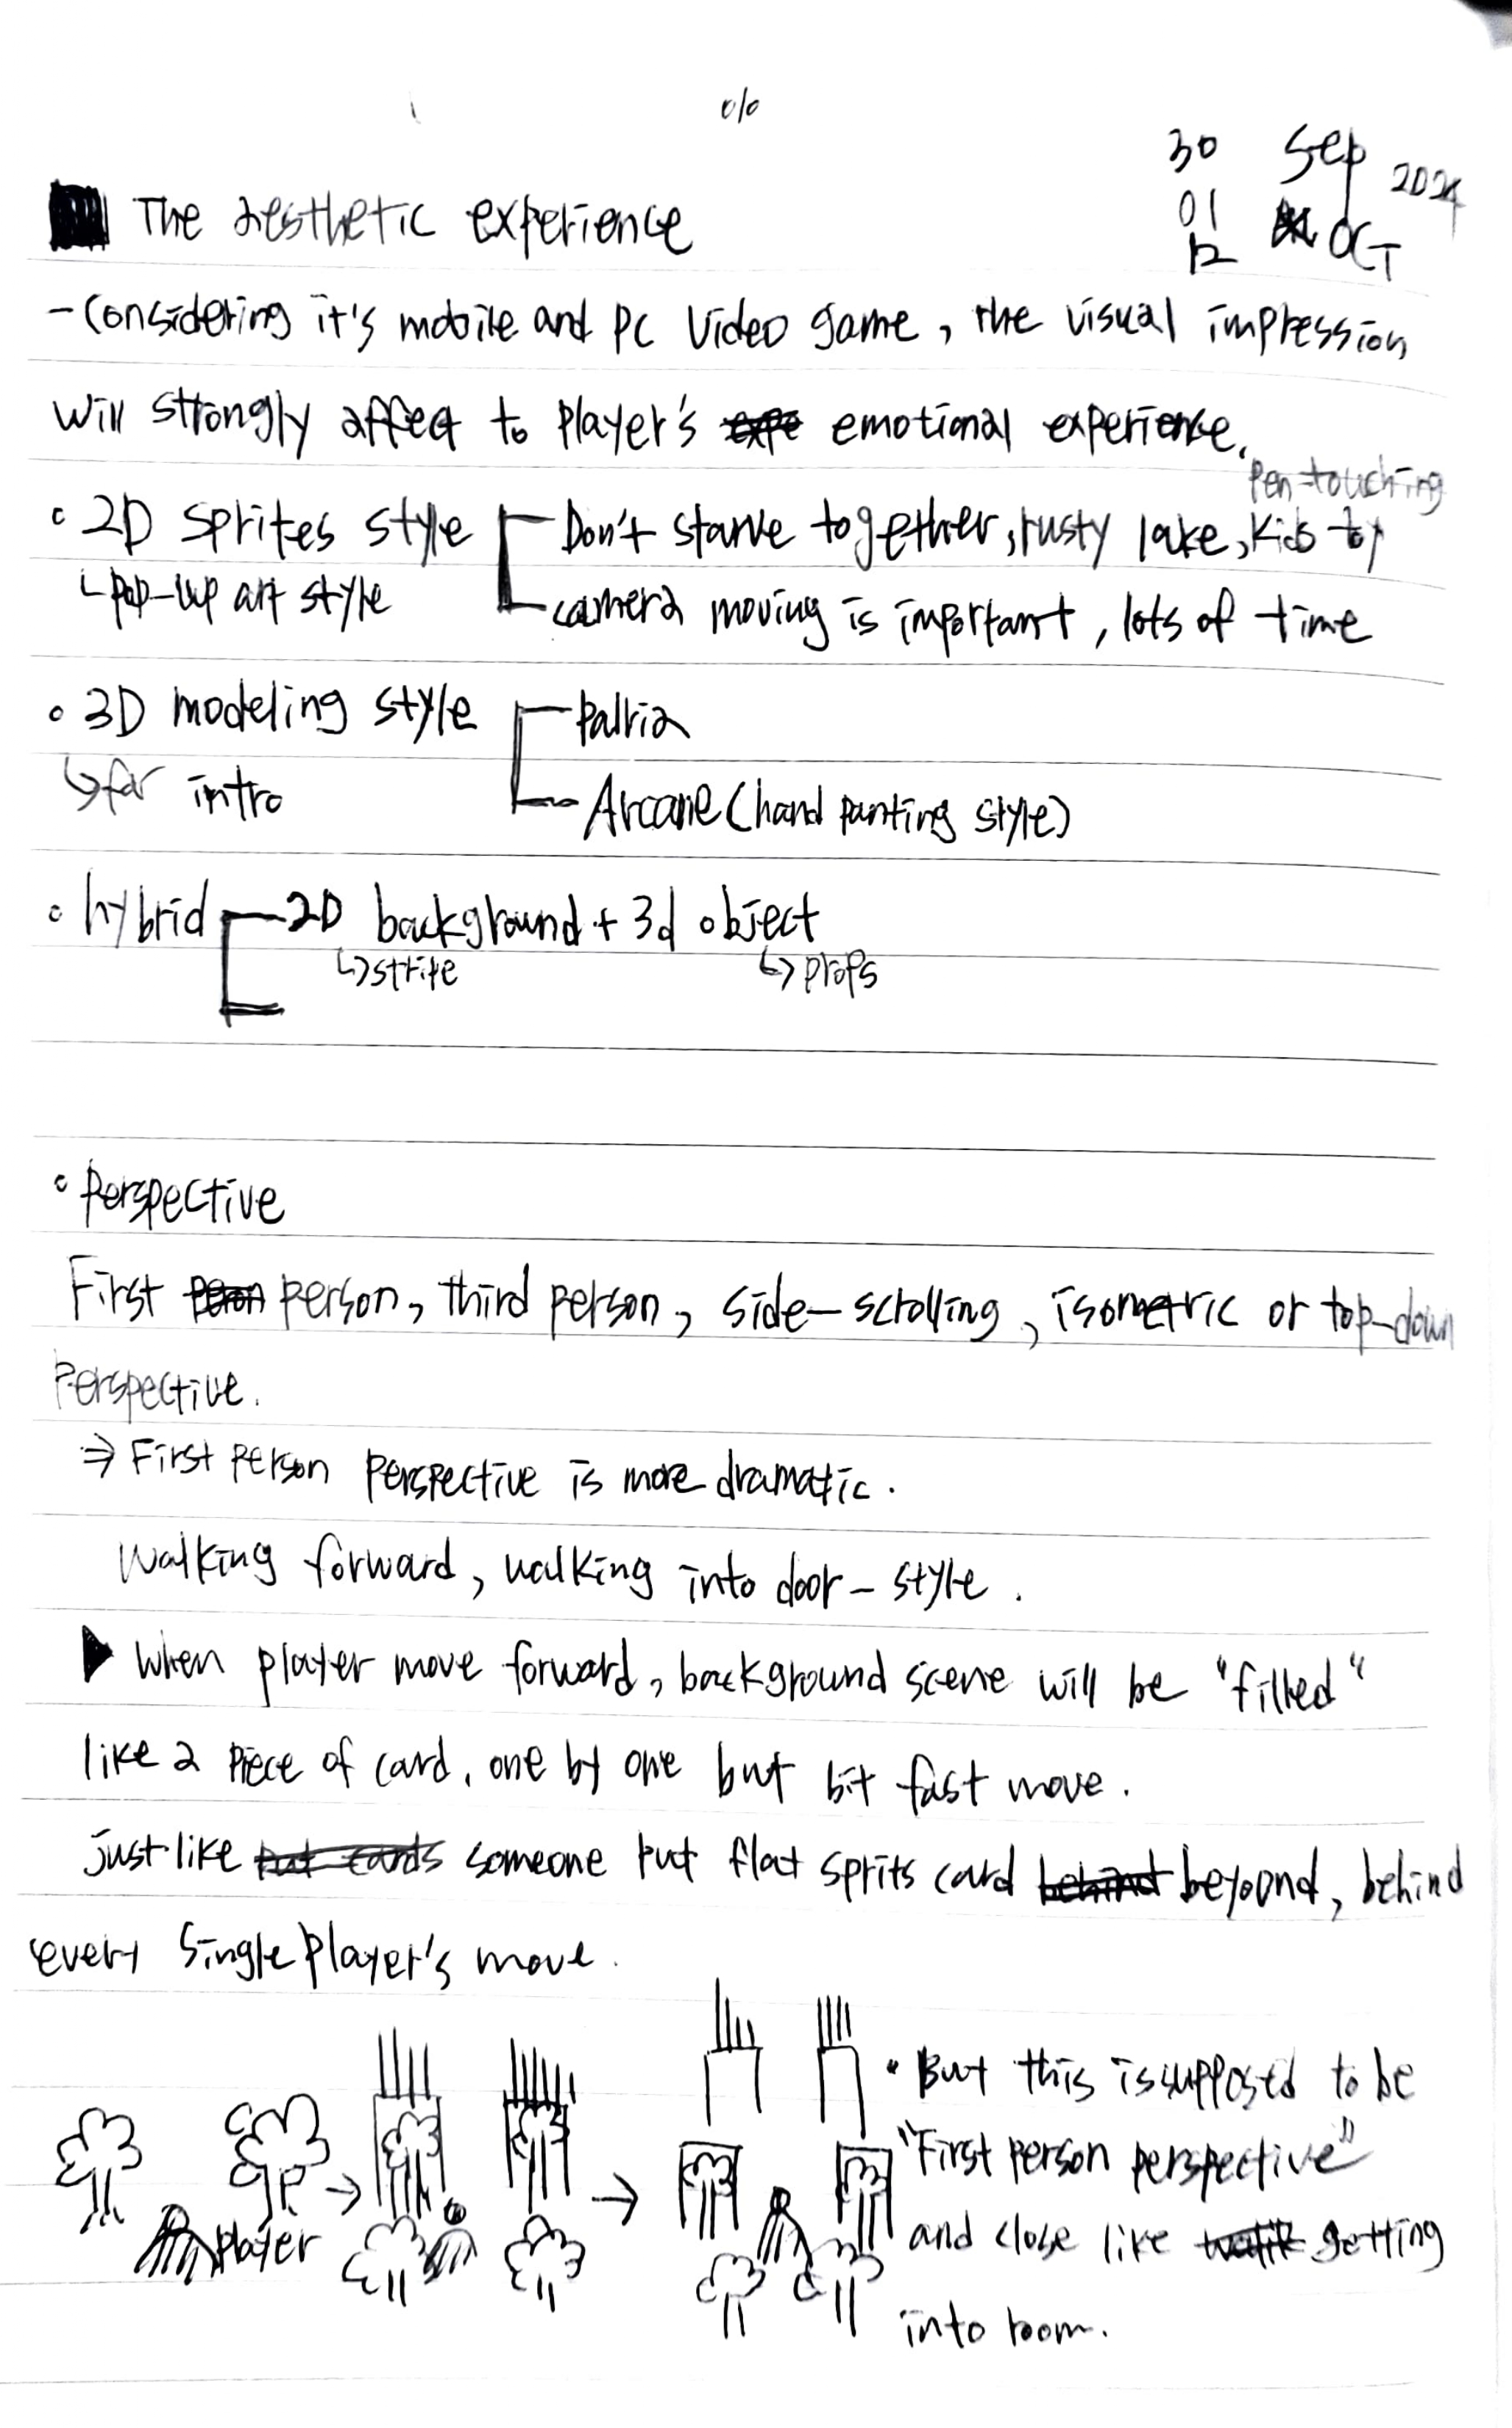 30 Sep 2024
01 OCT
12
The aesthetic experience
- Considering it's mobile and PC Video game, the visual impression
will strongly affect to player's emotional experience.
Pen-touching
2D sprites style
Don't starve together, rusty lake, kids toy
pop-up art style
camera moving is important, lots of time
3D modeling style
for intro
Arcane (hand panting style)
hybrid
2D background + 3d object
props
Perspective
First person, third person, side-scrolling, isometric or top-down
Perspective.
⇒ First person perspective is more dramatic.
Walking forward, walking into door-style.
▶ When player move forward, background scene will be "filled"
like a piece of card, one by one but bit fast move.
just like someone put flat sprits card beyoond, behind
every single player's move.
player
But this is supposed to be
"First person perspective"
and close like getting
into room.